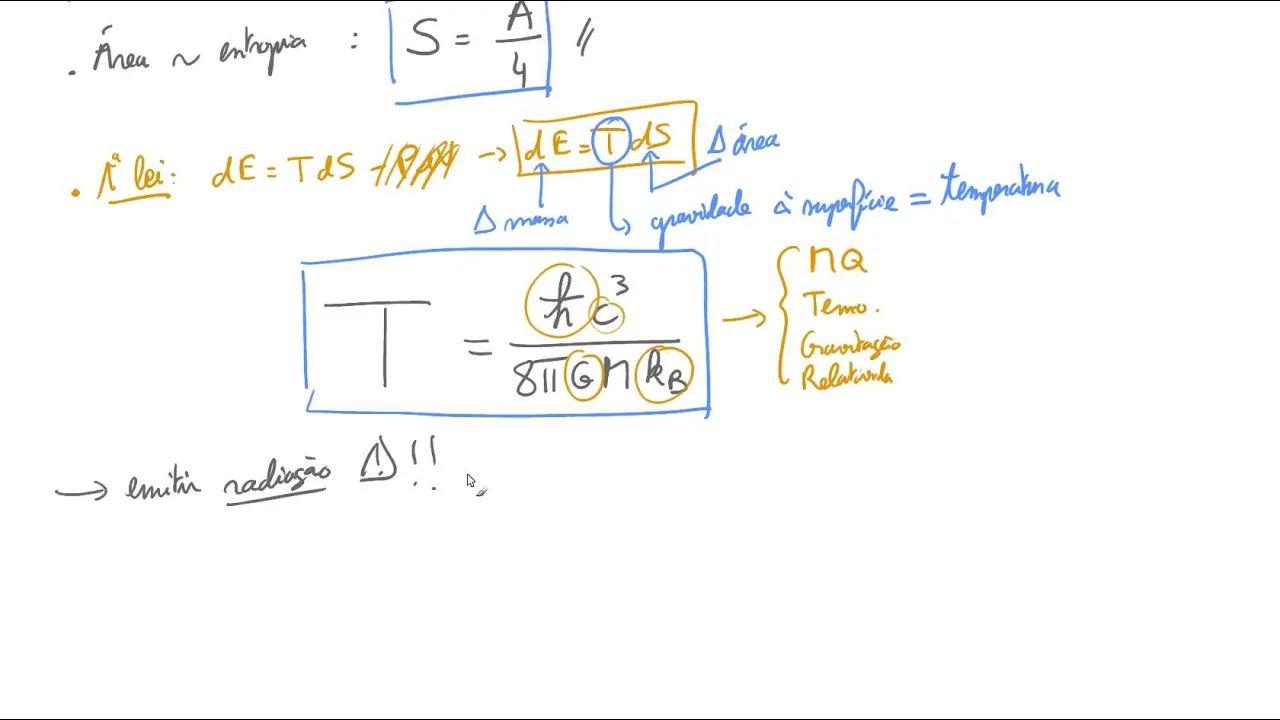 . Área ~ entropia : S = A/4 //
. 1ª lei: dE = TdS → dE = TdS
Δ área
Δ massa
gravidade à superfície = temperatura
T = ħc³/8πGMk_B → { MQ
Termo.
Gravitação
Relativida
→ emitir radiação ⚠!!